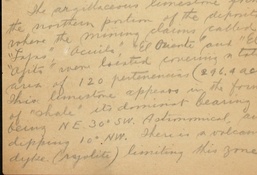 The argillaceous limestone for
the northern portion of the deposit
where the mining claims called
"Fajas", "Acuila", "El Oriente" and "El
were located covering a total
area of 120 pertenencias (296.4 ac
This limestone appears in the form
of "shale" its dominant bearing
being N.E. 30° SW. Astronomical, and
dipping 10° NW. There is a volcanic
dyke (ryolite) limiting this zone